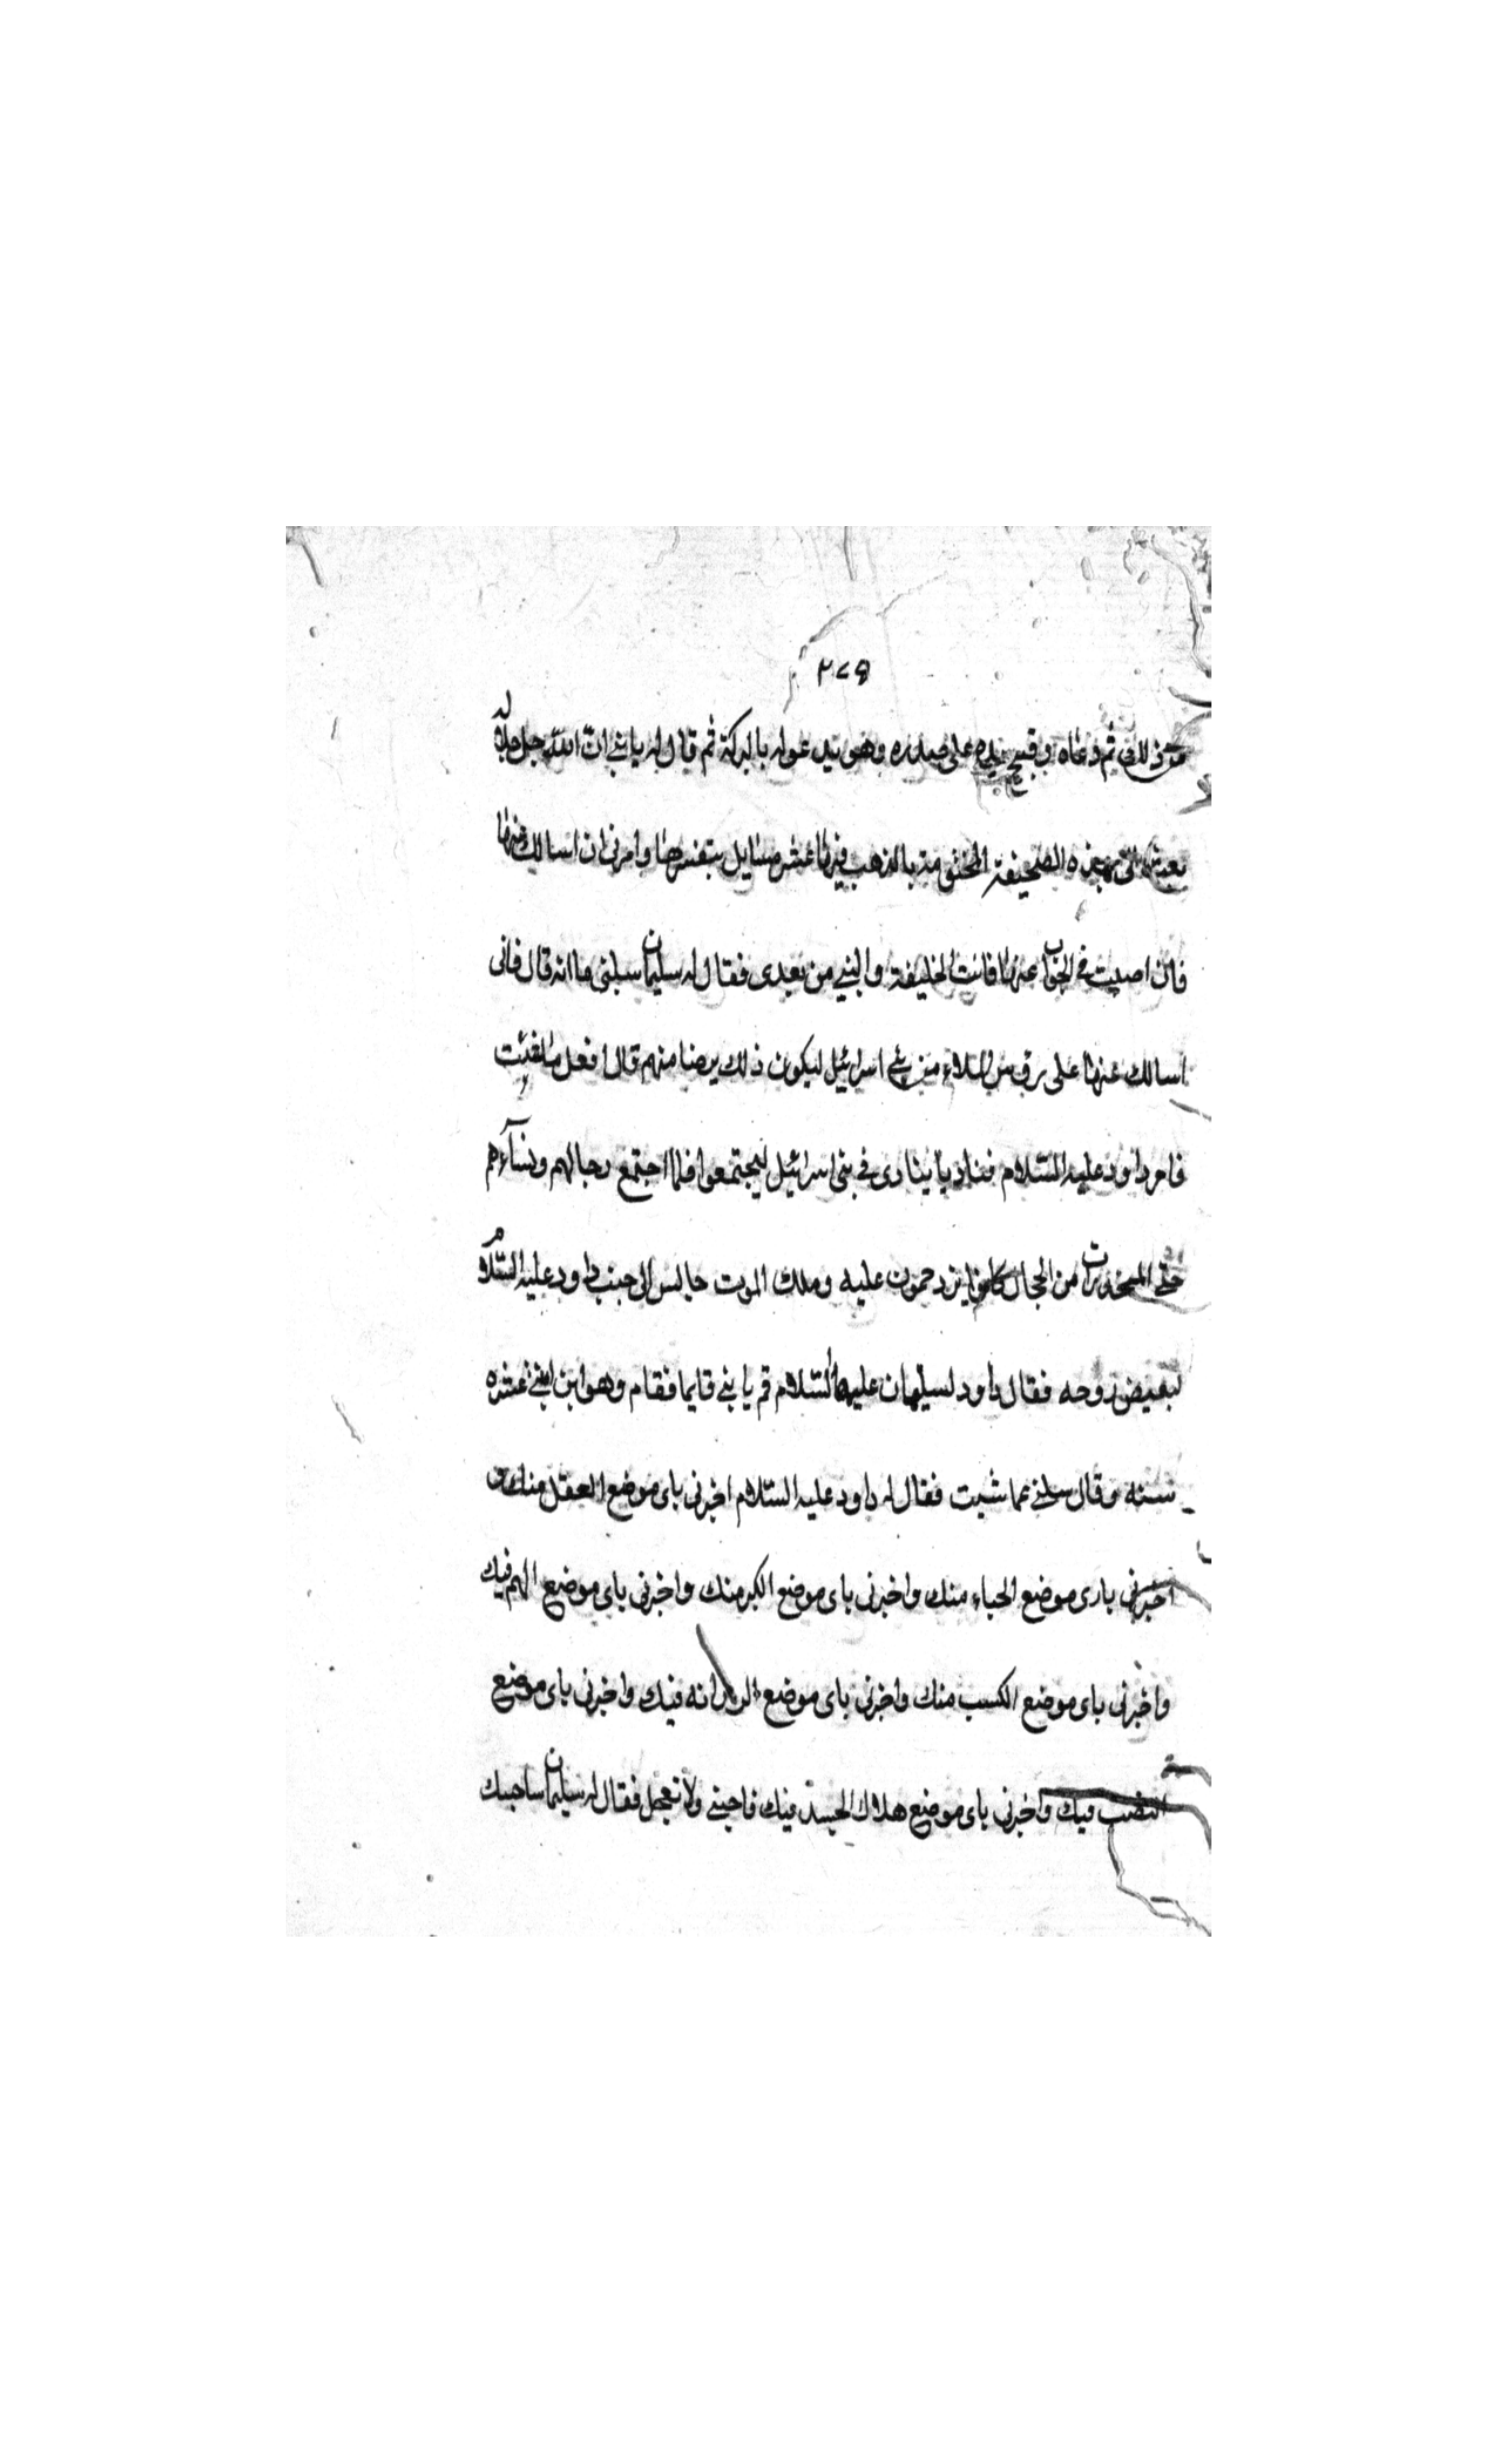 ٢٧٩
من ذلك ثم دعاه وقبح يده على صدره وهو يدعو له بالبركة ثم قال له يا بني ان الله جل جلاله
بعث الى بهذه الصحيفة المختومة بالذهب فيها عشر مسايل بتفسيرها وامرنى ان اسالك عنها
فان اصبت في الجواب عنها فانت الخليفة والنبي من بعدى فقال له سليمان سلنى ما انه قال فانى
اسالك عنها على روس الملاء من بني اسرائيل ليكون ذلك برضا منهم قال افعل ما شئت
فامر داود عليه السلام مناديا ينادى في بنى اسرائيل ليجتمعوا فلما اجتمع رجالهم ونساءهم
حتى المخدرات من الحجال كانوا يزدحمون عليه وملك الموت جالس الى جنب داود عليه السلام
لبقيض روحه فقال داود لسليمان عليهما السلام قم يا بني قايما فقام وهو ابن اثنى عشره
سنه وقال سلنى عما شيت فقال له داود عليه السلام اخبرنى باى موضع العقل منك و
اخبرنى باى موضع الحياء منك واخبرنى باى موضع الكبر منك واخبرنى باى موضع الهم فيك
واخبرنى باى موضع الكسب منك واخبرنى باى موضع فيك واخبرنى باى موضع
فيك واخبرنى باى موضع هلاك الجسد منك فاجبني ولا تعجل فقال له سليمان ساجيبك